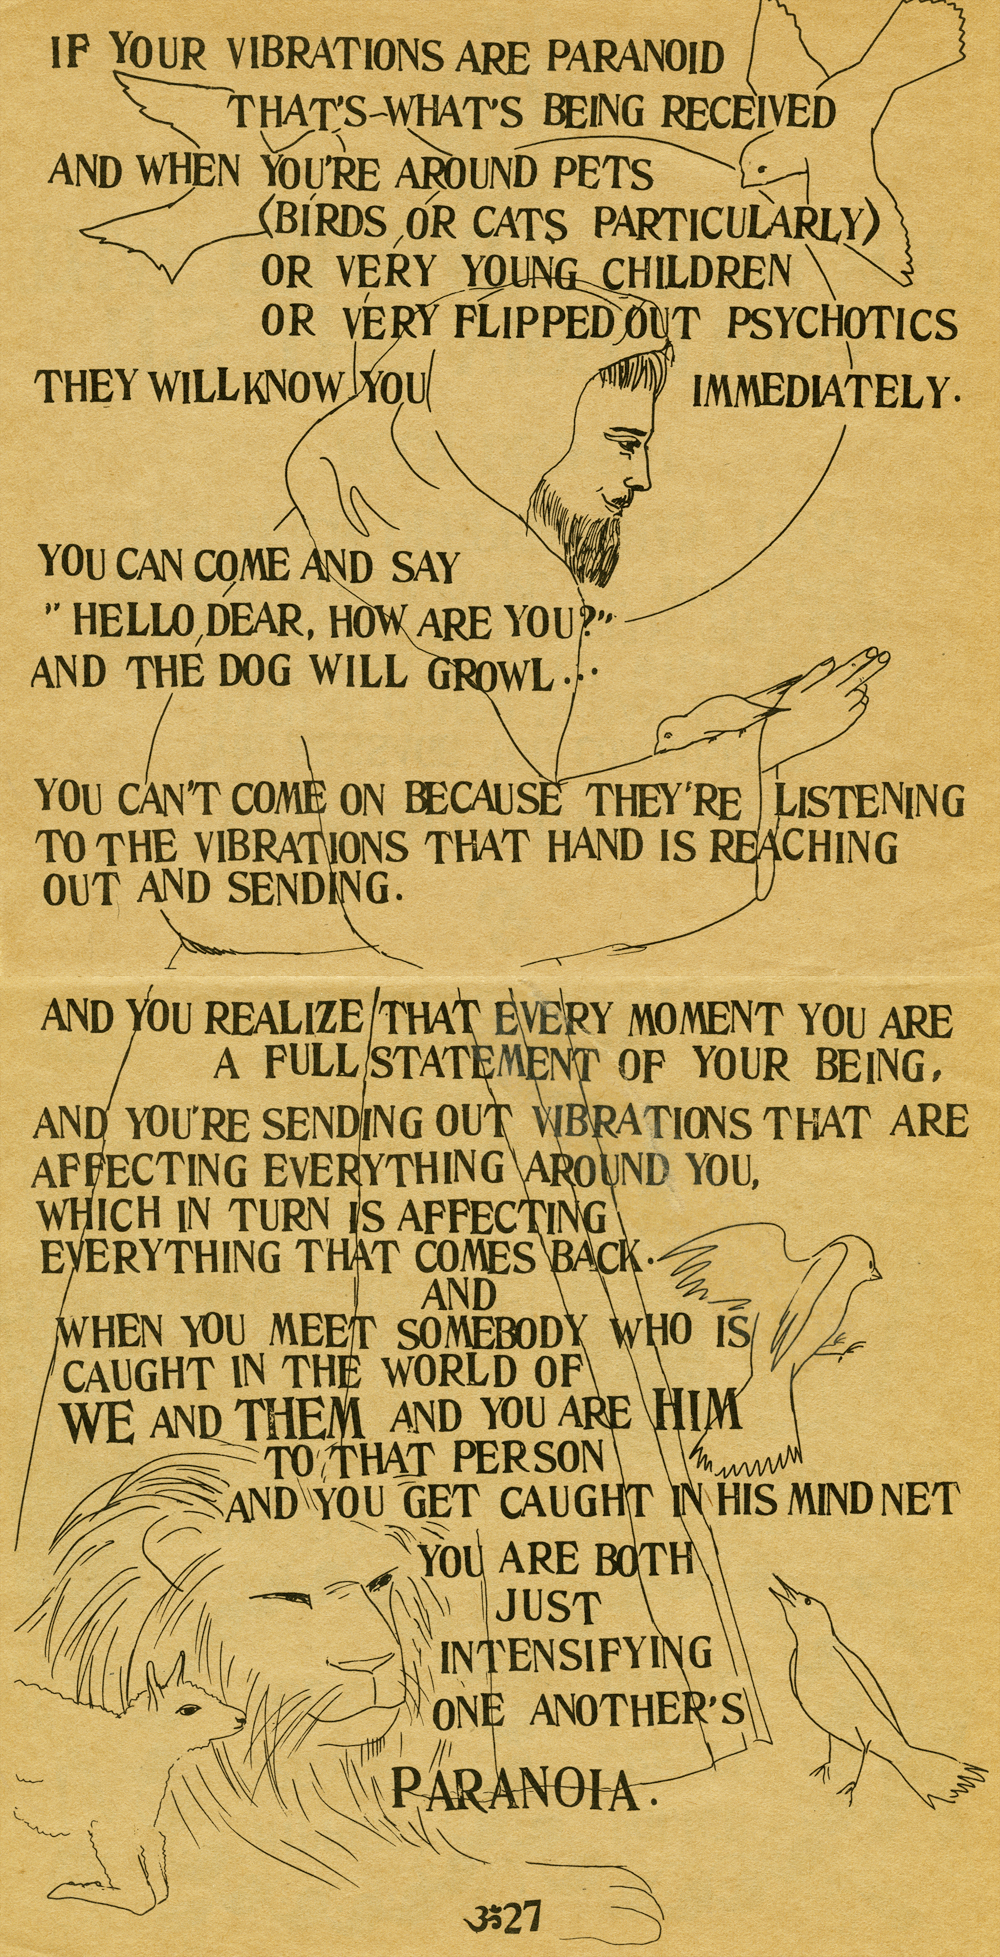 IF YOUR VIBRATIONS ARE PARANOID
THAT'S-WHAT'S BEING RECEIVED
AND WHEN YOU'RE AROUND PETS
(BIRDS OR CATS PARTICULARLY)
OR VERY YOUNG CHILDREN
OR VERY FLIPPED OUT PSYCHOTICS
THEY WILL KNOW YOU IMMEDIATELY.
YOU CAN COME AND SAY
"HELLO, DEAR, HOW ARE YOU?"
AND THE DOG WILL GROWL...
YOU CAN'T COME ON BECAUSE THEY'RE LISTENING
TO THE VIBRATIONS THAT HAND IS REACHING
OUT AND SENDING.
AND YOU REALIZE THAT EVERY MOMENT YOU ARE
A FULL STATEMENT OF YOUR BEING,
AND YOU'RE SENDING OUT VIBRATIONS THAT ARE
AFFECTING EVERYTHING AROUND YOU,
WHICH IN TURN IS AFFECTING
EVERYTHING THAT COMES BACK.
AND
WHEN YOU MEET SOMEBODY WHO IS
CAUGHT IN THE WORLD OF
WE AND THEM AND YOU ARE HIM
TO THAT PERSON
AND YOU GET CAUGHT IN HIS MIND NET
YOU ARE BOTH
JUST
INTENSIFYING
ONE ANOTHER'S
PARANOIA.
ॐ27